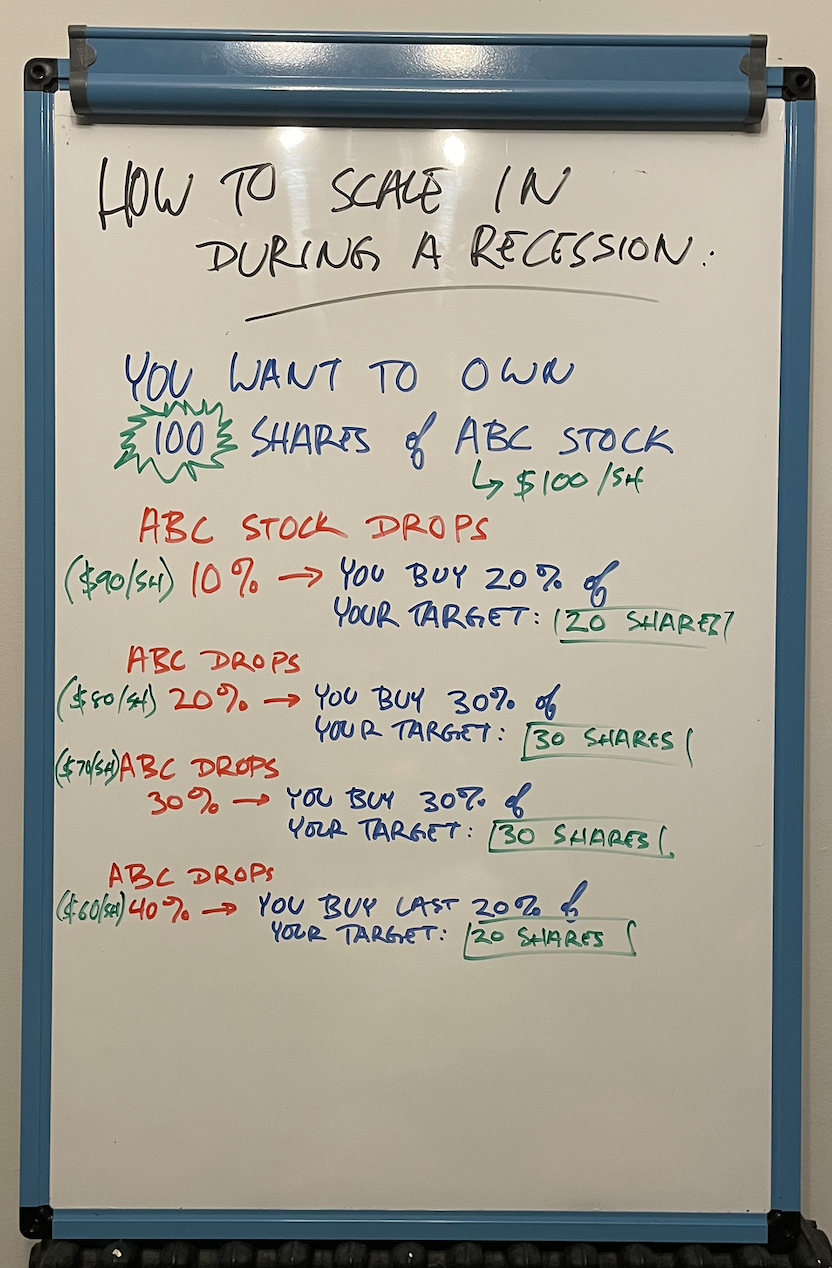 HOW TO SCALE IN
DURING A RECESSION.
YOU WANT TO OWN
100 SHARES of ABC STOCK
↳ $100/SH
ABC STOCK DROPS
($90/SH) 10% → YOU BUY 20% of
YOUR TARGET: 20 SHARES
ABC DROPS
($80/SH) 20% → YOU BUY 30% of
YOUR TARGET: 30 SHARES
($70/SH) ABC DROPS
30% → YOU BUY 30% of
YOUR TARGET: 30 SHARES
ABC DROPS
($60/SH) 40% → YOU BUY LAST 20% of
YOUR TARGET: 20 SHARES